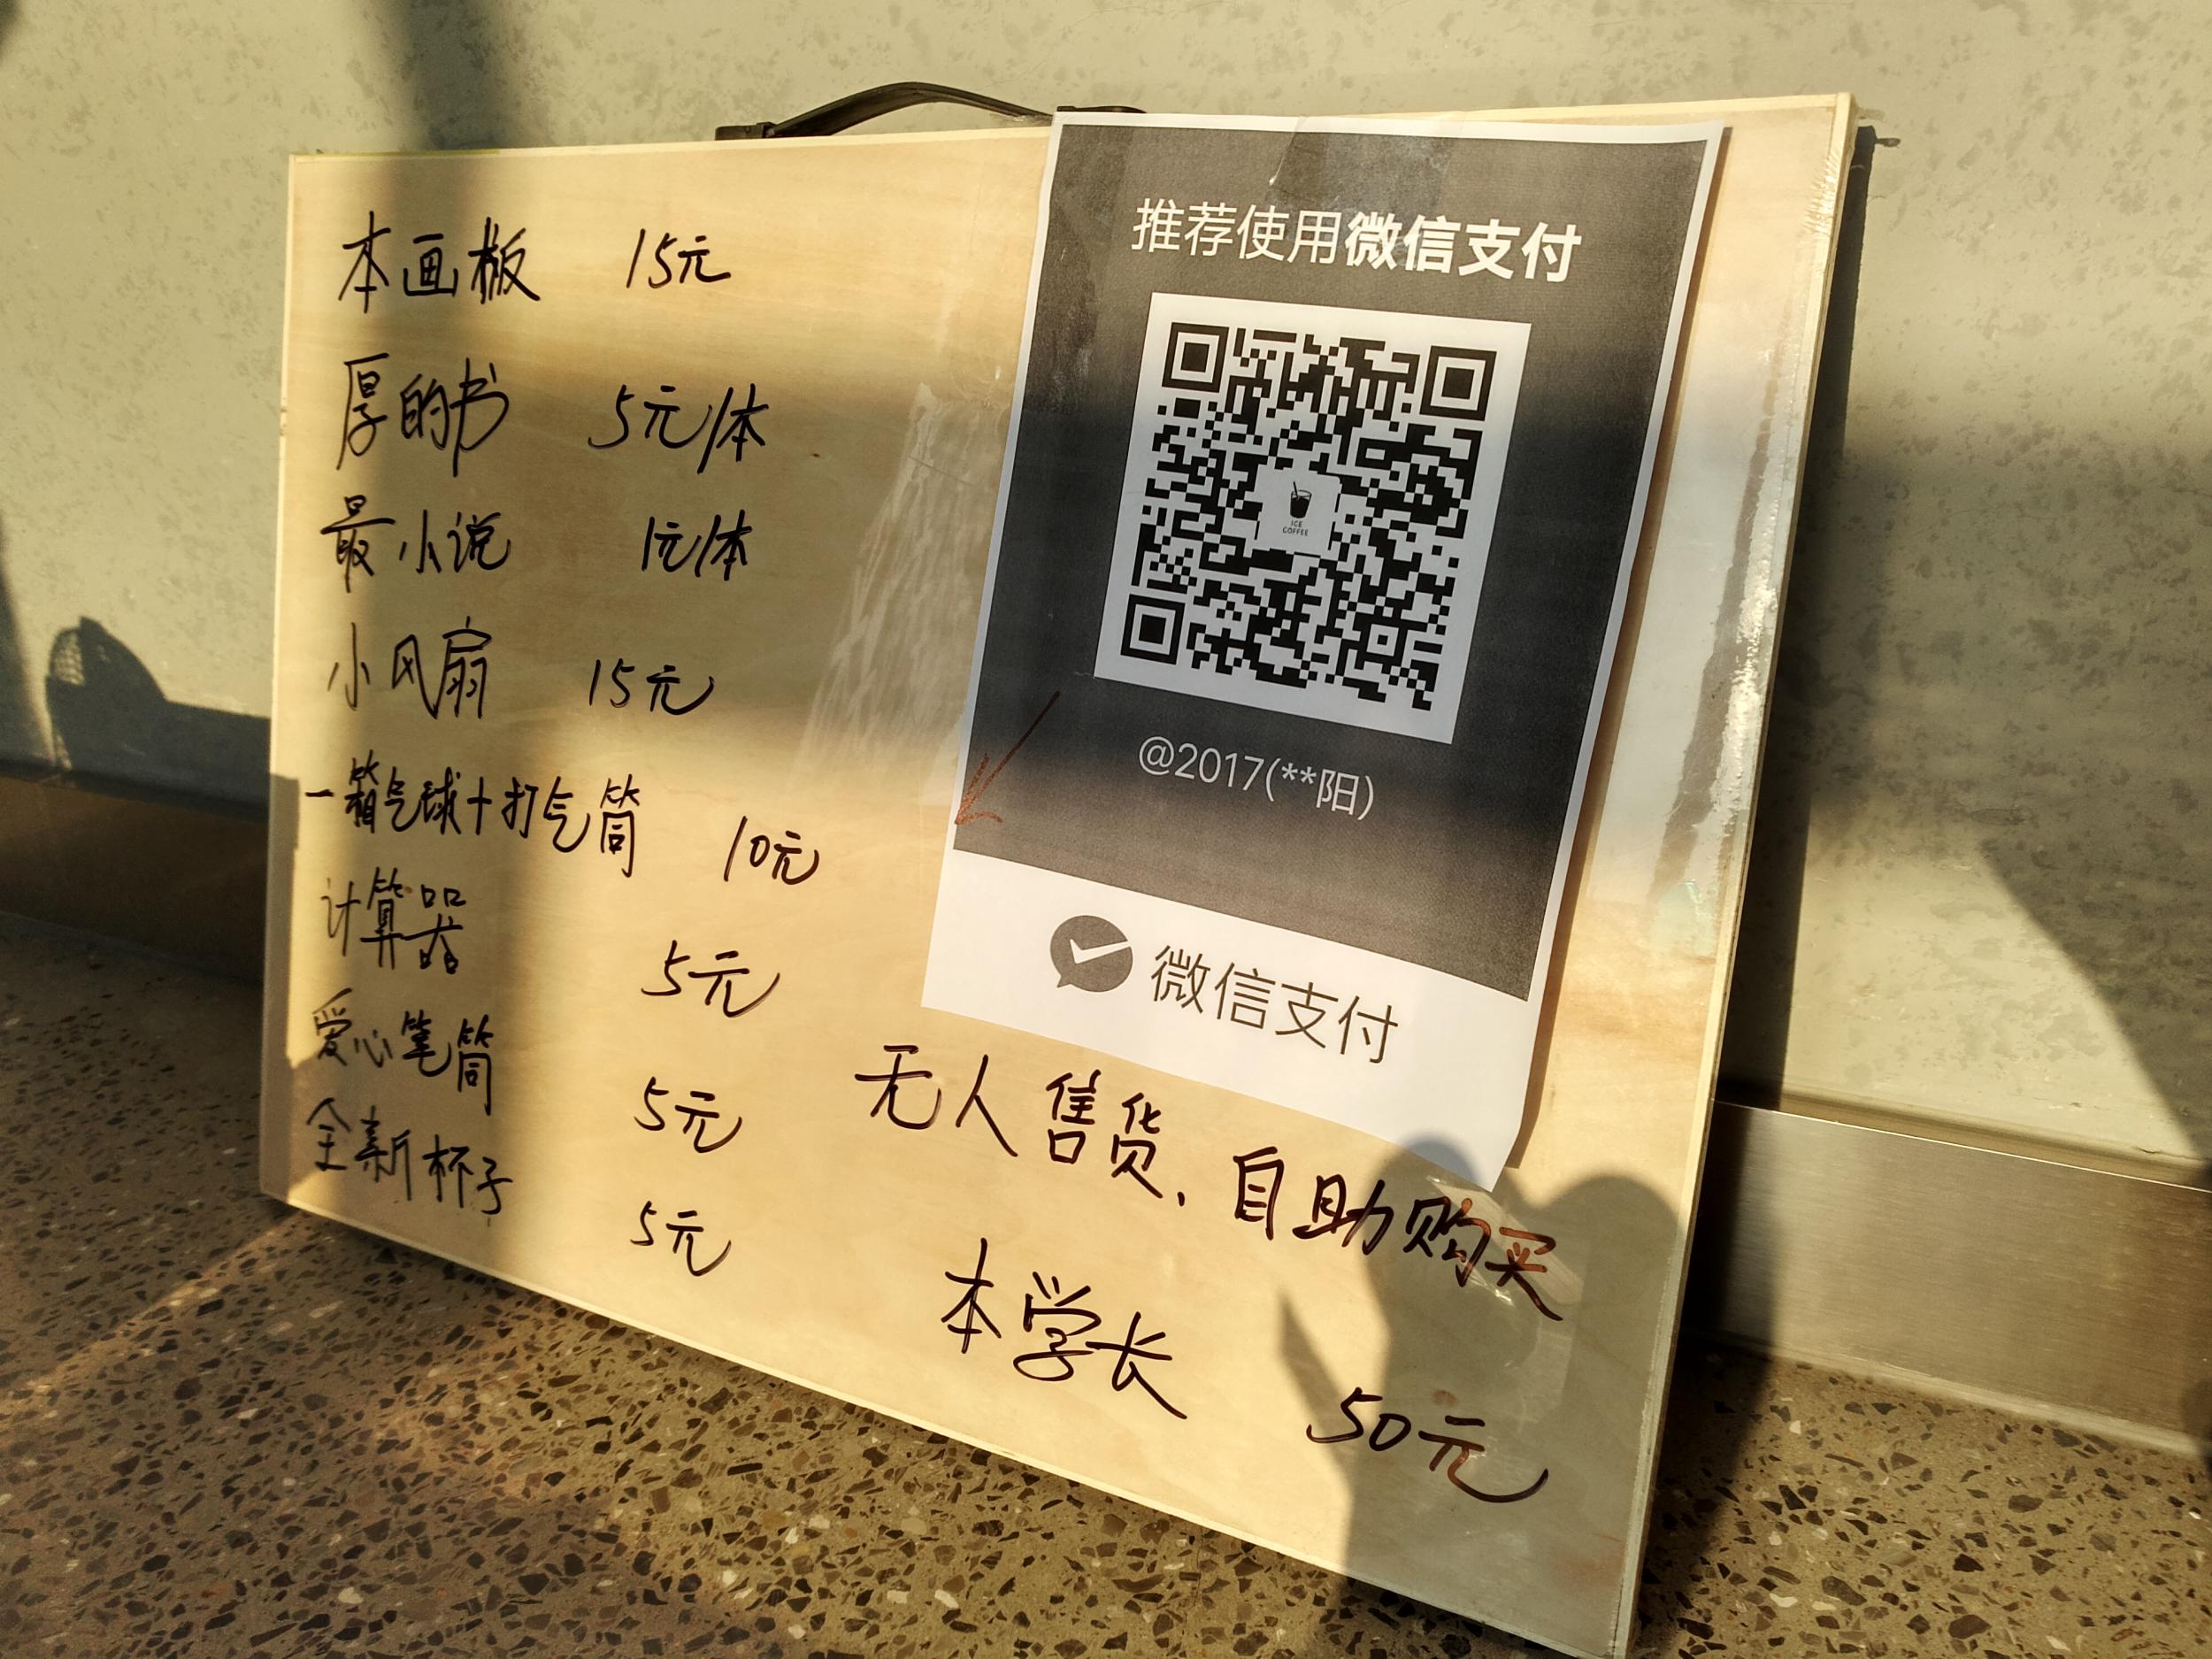 本画板 15元
厚的书 5元/本
最小说 1元/本
小风扇 15元
一箱气球+打气筒 10元
计算器 5元
爱心笔筒 5元
全新杯子 5元
推荐使用微信支付
ICE
COFFEE
@2017(**阳)
微信支付
无人售货、自助购买
本学长 50元